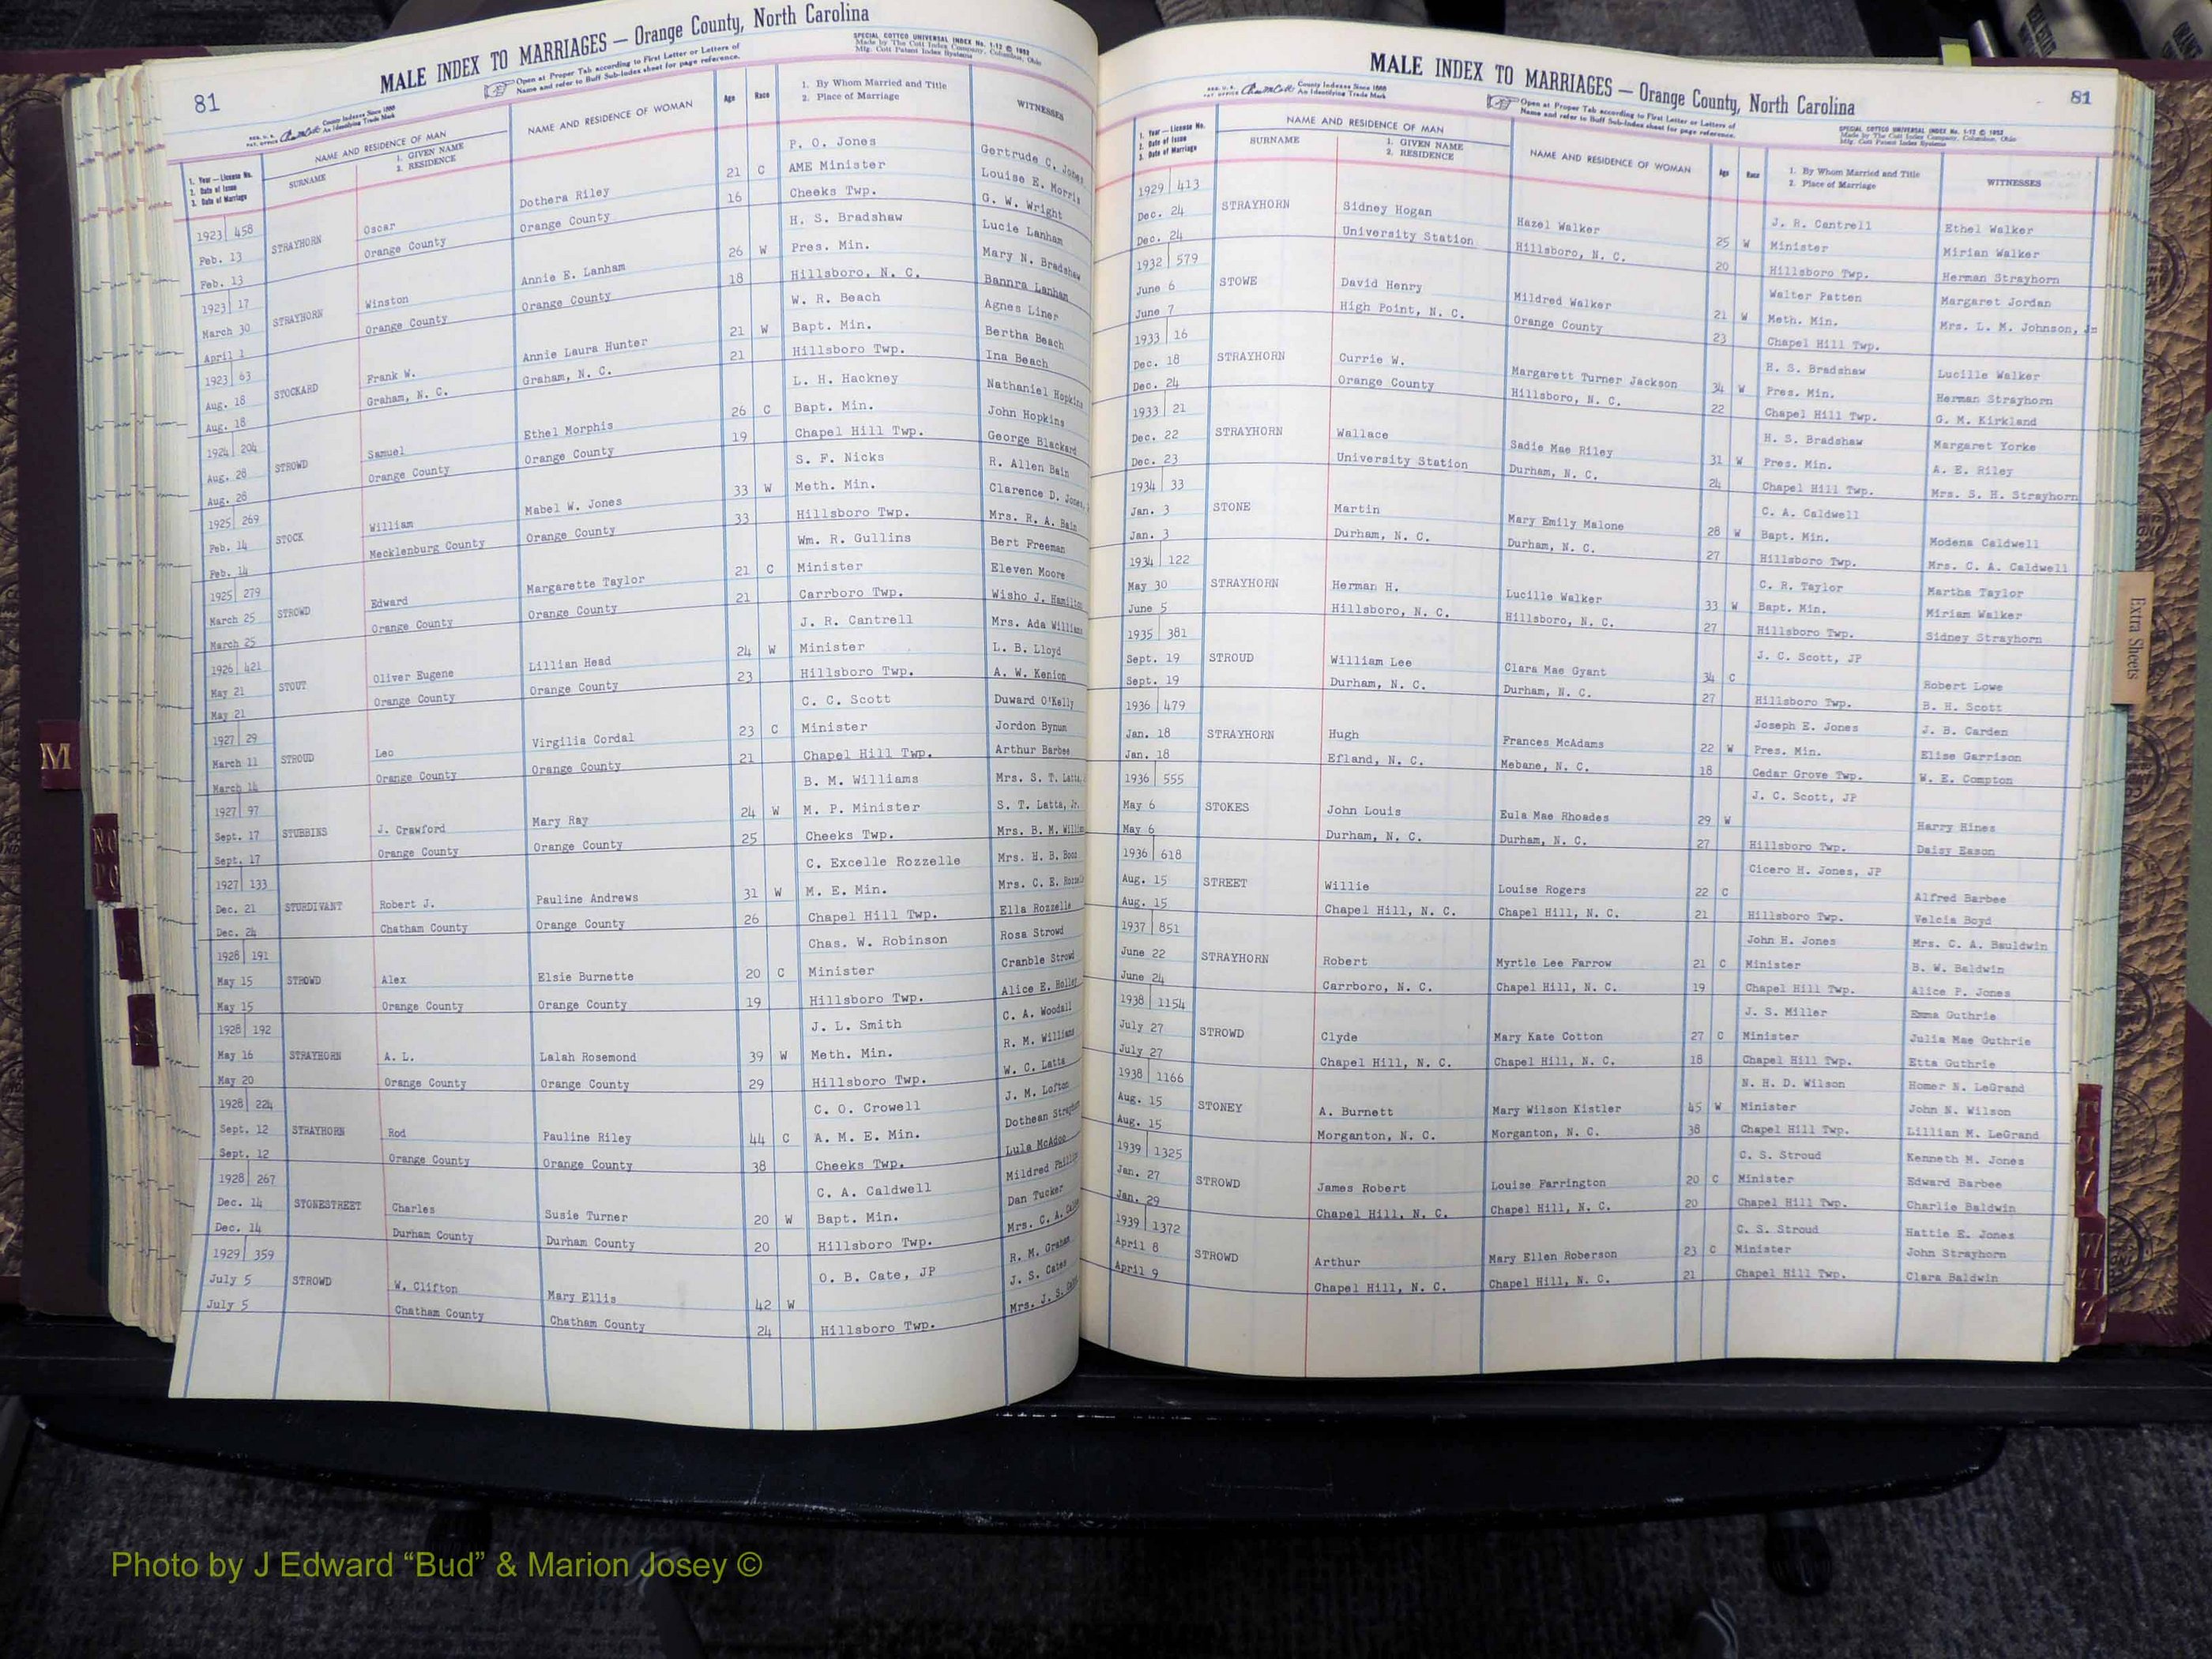 MALE INDEX TO MARRIAGES — Orange County, North Carolina
81
Open at Proper Tab according to First Letter or Letters of
Name and refer to Buff Sub-Index sheet for page reference.
SPECIAL COTTCO UNIVERSAL INDEX No. 1-12 © 1952
Made by The Cott Index Company, Columbus, Ohio
Mfg. Cott Patent Index Systems
County Indexes Since 1888
An Identifying Trade Mark
1. Year — License No.
2. Date of Issue
3. Date of Marriage
NAME AND RESIDENCE OF MAN
SURNAME
1. GIVEN NAME
2. RESIDENCE
NAME AND RESIDENCE OF WOMAN
Age
Race
1. By Whom Married and Title
2. Place of Marriage
WITNESSES
1923 458 P. O. Jones Gertrude C. Jones
Feb. 13 STRAYHORN Oscar Dothera Riley 21 C AME Minister Louise E. Morris
Feb. 13 Orange County Orange County 16 Cheeks Twp. G. W. Wright
1923 17 H. S. Bradshaw Lucie Lanham
March 30 STRAYHORN Winston Annie E. Lanham 26 W Pres. Min. Mary N. Bradshaw
April 1 Orange County Orange County 18 Hillsboro, N. C. Bannra Lanham
1923 63 W. R. Beach Agnes Liner
Aug. 18 STOCKARD Frank W. Annie Laura Hunter 21 W Bapt. Min. Bertha Beach
Aug. 18 Graham, N. C. Graham, N. C. 21 Hillsboro Twp. Ina Beach
1924 204 L. H. Hackney Nathaniel Hopkins
Aug. 28 STROWD Samuel Ethel Morphis 26 C Bapt. Min. John Hopkins
Aug. 28 Orange County Orange County 19 Chapel Hill Twp. George Blackard
1925 269 S. F. Nicks R. Allen Bain
Feb. 14 STOCK William Mabel W. Jones 33 W Meth. Min. Clarence D. Jones,
Feb. 14 Mecklenburg County Orange County 33 Hillsboro Twp. Mrs. R. A. Bain
1925 279 Wm. R. Gullins Bert Freeman
March 25 STROWD Edward Margarette Taylor 21 C Minister Eleven Moore
March 25 Orange County Orange County 21 Carrboro Twp. Wisho J. Hamilton
1926 421 J. R. Cantrell Mrs. Ada Williams
May 21 STOUT Oliver Eugene Lillian Head 24 W Minister L. B. Lloyd
May 21 Orange County Orange County 23 Hillsboro Twp. A. W. Kenion
1927 29 C. C. Scott Duward O'Kelly
March 11 STROUD Leo Virgilia Cordal 23 C Minister Jordon Bynum
March 14 Orange County Orange County 21 Chapel Hill Twp. Arthur Barbee
1927 97 B. M. Williams Mrs. S. T. Latta,
Sept. 17 STUBBINS J. Crawford Mary Ray 24 W M. P. Minister S. T. Latta, Jr.
Sept. 17 Orange County Orange County 25 Cheeks Twp. Mrs. B. M.
1927 133 C. Excelle Rozzelle Mrs. H. B.
Dec. 21 STURDIVANT Robert J. Pauline Andrews 31 W M. E. Min. Mrs. C. E.
Dec. 24 Chatham County Orange County 26 Chapel Hill Twp. Ella Rozzelle
1928 191 Chas. W. Robinson Rosa Strowd
May 15 STROWD Alex Elsie Burnette 20 C Minister Cranble Strowd
May 15 Orange County Orange County 19 Hillsboro Twp. Alice E. Holley
1928 192 J. L. Smith C. A. Woodall
May 16 STRAYHORN A. L. Lalah Rosemond 39 W Meth. Min. R. M. Williams
May 20 Orange County Orange County 29 Hillsboro Twp. W. C. Latta
1928 224 C. O. Crowell J. M. Lofton
Sept. 12 STRAYHORN Rod Pauline Riley 44 C A. M. E. Min. Dothean
Sept. 12 Orange County Orange County 38 Cheeks Twp. Lula McAdoo
1928 267 C. A. Caldwell Mildred
Dec. 14 STONESTREET Charles Susie Turner 20 W Bapt. Min. Dan Tucker
Dec. 14 Durham County Durham County 20 Hillsboro Twp. Mrs. C. A.
1929 359 O. B. Cate, JP R. M. Graham
July 5 STROWD W. Clifton Mary Ellis 42 W J. S. Cates
July 5 Chatham County Chatham County 24 Hillsboro Twp. Mrs. J. S.
MALE INDEX TO MARRIAGES — Orange County, North Carolina
81
County Indexes Since 1888
An Identifying Trade Mark
Open at Proper Tab according to First Letter or Letters of
Name and refer to Buff Sub-Index sheet for page reference.
SPECIAL COTTCO UNIVERSAL INDEX No. 1-12 © 1952
Made by The Cott Index Company, Columbus, Ohio
Mfg. Cott Patent Index Systems
1. Year — License No.
2. Date of Issue
3. Date of Marriage
NAME AND RESIDENCE OF MAN
SURNAME
1. GIVEN NAME
2. RESIDENCE
NAME AND RESIDENCE OF WOMAN
Age
Race
1. By Whom Married and Title
2. Place of Marriage
WITNESSES
1929 413 J. R. Cantrell Ethel Walker
Dec. 24 STRAYHORN Sidney Hogan Hazel Walker 25 W Minister Mirian Walker
Dec. 24 University Station Hillsboro, N. C. 20 Hillsboro Twp. Herman Strayhorn
1932 579 Walter Patten Margaret Jordan
June 6 STOWE David Henry Mildred Walker 21 W Meth. Min. Mrs. L. M. Johnson, Jr
June 7 High Point, N. C. Orange County 23 Chapel Hill Twp.
1933 16 H. S. Bradshaw Lucille Walker
Dec. 18 STRAYHORN Currie W. Margarett Turner Jackson 34 W Pres. Min. Herman Strayhorn
Dec. 24 Orange County Hillsboro, N. C. 22 Chapel Hill Twp. G. M. Kirkland
1933 21 H. S. Bradshaw Margaret Yorke
Dec. 22 STRAYHORN Wallace Sadie Mae Riley 31 W Pres. Min. A. E. Riley
Dec. 23 University Station Durham, N. C. 24 Chapel Hill Twp. Mrs. S. H. Strayhorn
1934 33 C. A. Caldwell
Jan. 3 STONE Martin Mary Emily Malone 28 W Bapt. Min. Modena Caldwell
Jan. 3 Durham, N. C. Durham, N. C. 27 Hillsboro Twp. Mrs. C. A. Caldwell
1934 122 C. R. Taylor Martha Taylor
May 30 STRAYHORN Herman H. Lucille Walker 33 W Bapt. Min. Miriam Walker
June 5 Hillsboro, N. C. Hillsboro, N. C. 27 Hillsboro Twp. Sidney Strayhorn
1935 381 J. C. Scott, JP
Sept. 19 STROUD William Lee Clara Mae Gyant 34 C Robert Lowe
Sept. 19 Durham, N. C. Durham, N. C. 27 Hillsboro Twp. B. H. Scott
1936 479 Joseph E. Jones J. B. Carden
Jan. 18 STRAYHORN Hugh Frances McAdams 22 W Pres. Min. Elise Garrison
Jan. 18 Efland, N. C. Mebane, N. C. 18 Cedar Grove Twp. W. E. Compton
1936 555 J. C. Scott, JP
May 6 STOKES John Louis Eula Mae Rhoades 29 W Harry Hines
May 6 Durham, N. C. Durham, N. C. 27 Hillsboro Twp. Daisy Eason
1936 618 Cicero H. Jones, JP
Aug. 15 STREET Willie Louise Rogers 22 C Alfred Barbee
Aug. 15 Chapel Hill, N. C. Chapel Hill, N. C. 21 Hillsboro Twp. Velcia Boyd
1937 851 John H. Jones Mrs. C. A. Bauldwin
June 22 STRAYHORN Robert Myrtle Lee Farrow 21 C Minister B. W. Baldwin
June 24 Carrboro, N. C. Chapel Hill, N. C. 19 Chapel Hill Twp. Alice P. Jones
1938 1154 J. S. Miller Emma Guthrie
July 27 STROWD Clyde Mary Kate Cotton 27 C Minister Julia Mae Guthrie
July 27 Chapel Hill, N. C. Chapel Hill, N. C. 18 Chapel Hill Twp. Etta Guthrie
1938 1166 N. H. D. Wilson Homer N. LeGrand
Aug. 15 STONEY A. Burnett Mary Wilson Kistler 45 W Minister John N. Wilson
Aug. 15 Morganton, N. C. Morganton, N. C. 38 Chapel Hill Twp. Lillian M. LeGrand
1939 1325 C. S. Stroud Kenneth M. Jones
Jan. 27 STROWD James Robert Louise Farrington 20 C Minister Edward Barbee
Jan. 29 Chapel Hill, N. C. Chapel Hill, N. C. 20 Chapel Hill Twp. Charlie Baldwin
1939 1372 C. S. Stroud Hattie E. Jones
April 8 STROWD Arthur Mary Ellen Roberson 23 C Minister John Strayhorn
April 9 Chapel Hill, N. C. Chapel Hill, N. C. 21 Chapel Hill Twp. Clara Baldwin
Extra Sheets
M
W
Z
Photo by J Edward “Bud” & Marion Josey ©